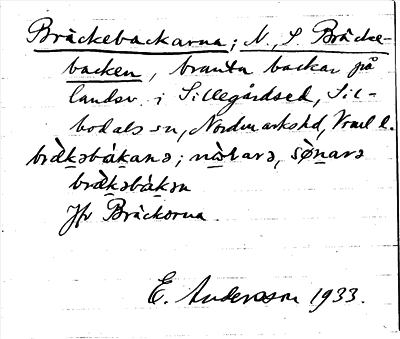 Bräckebackarna; N., S. Bräcke-
backen, branta backar på
landsv. i Sillegårdsed, Sil-
bodals sn, Nordmarks hd, Vrml l.
bræ̀kəbákana; nəlarə, sønarə
bræ̀kəbákən
Jfr Bräckorna.
E. Andersson 1933.